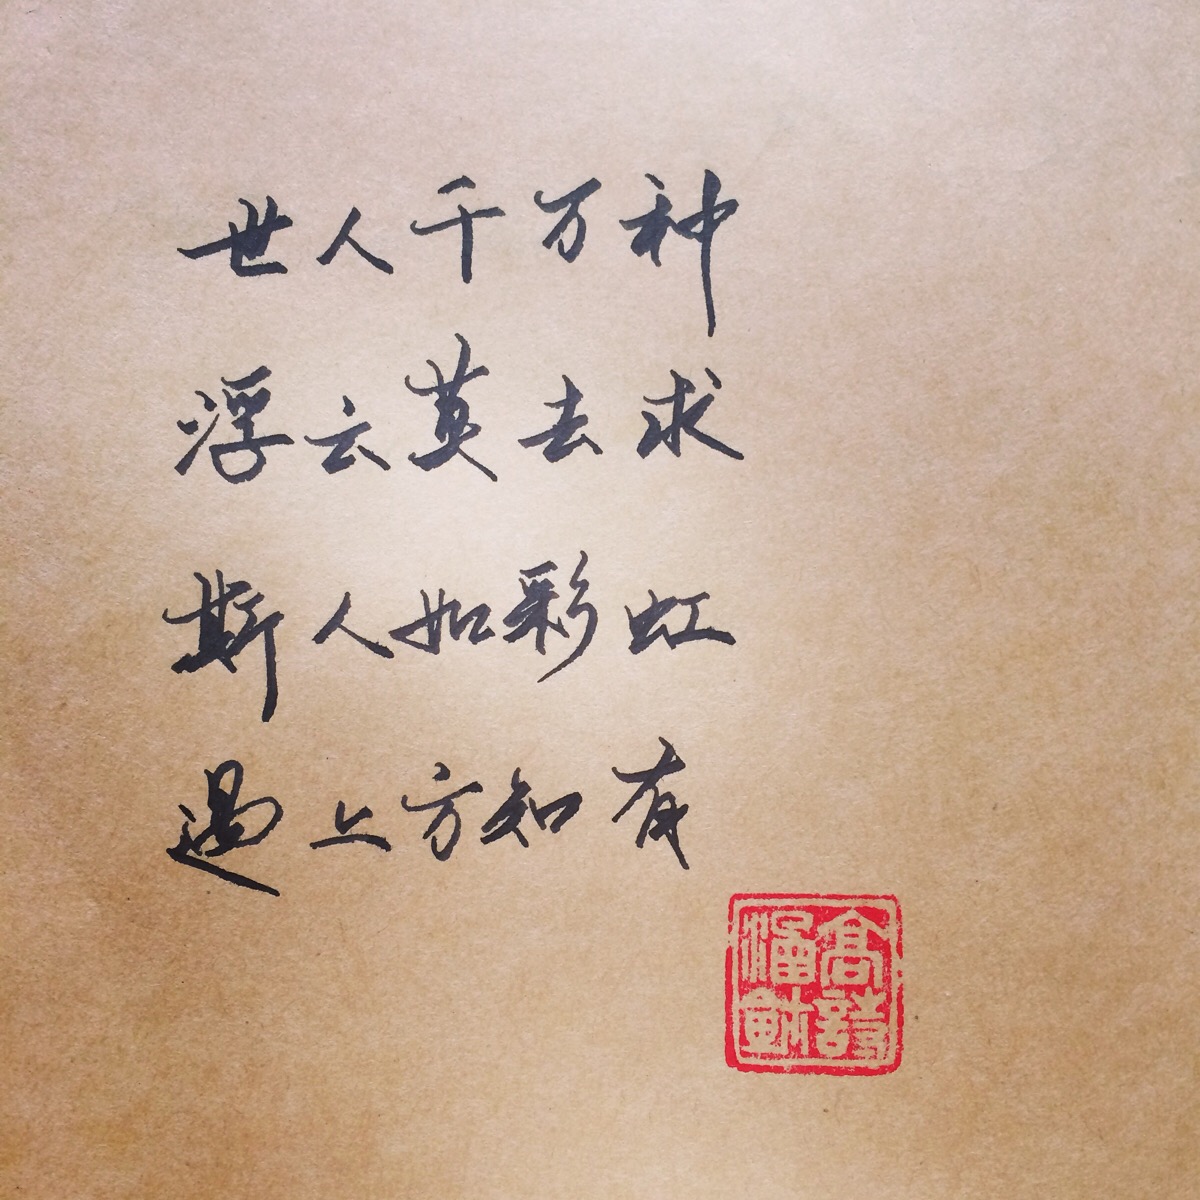 世人千万种
浮云莫去求
斯人如彩虹
遇上方知有